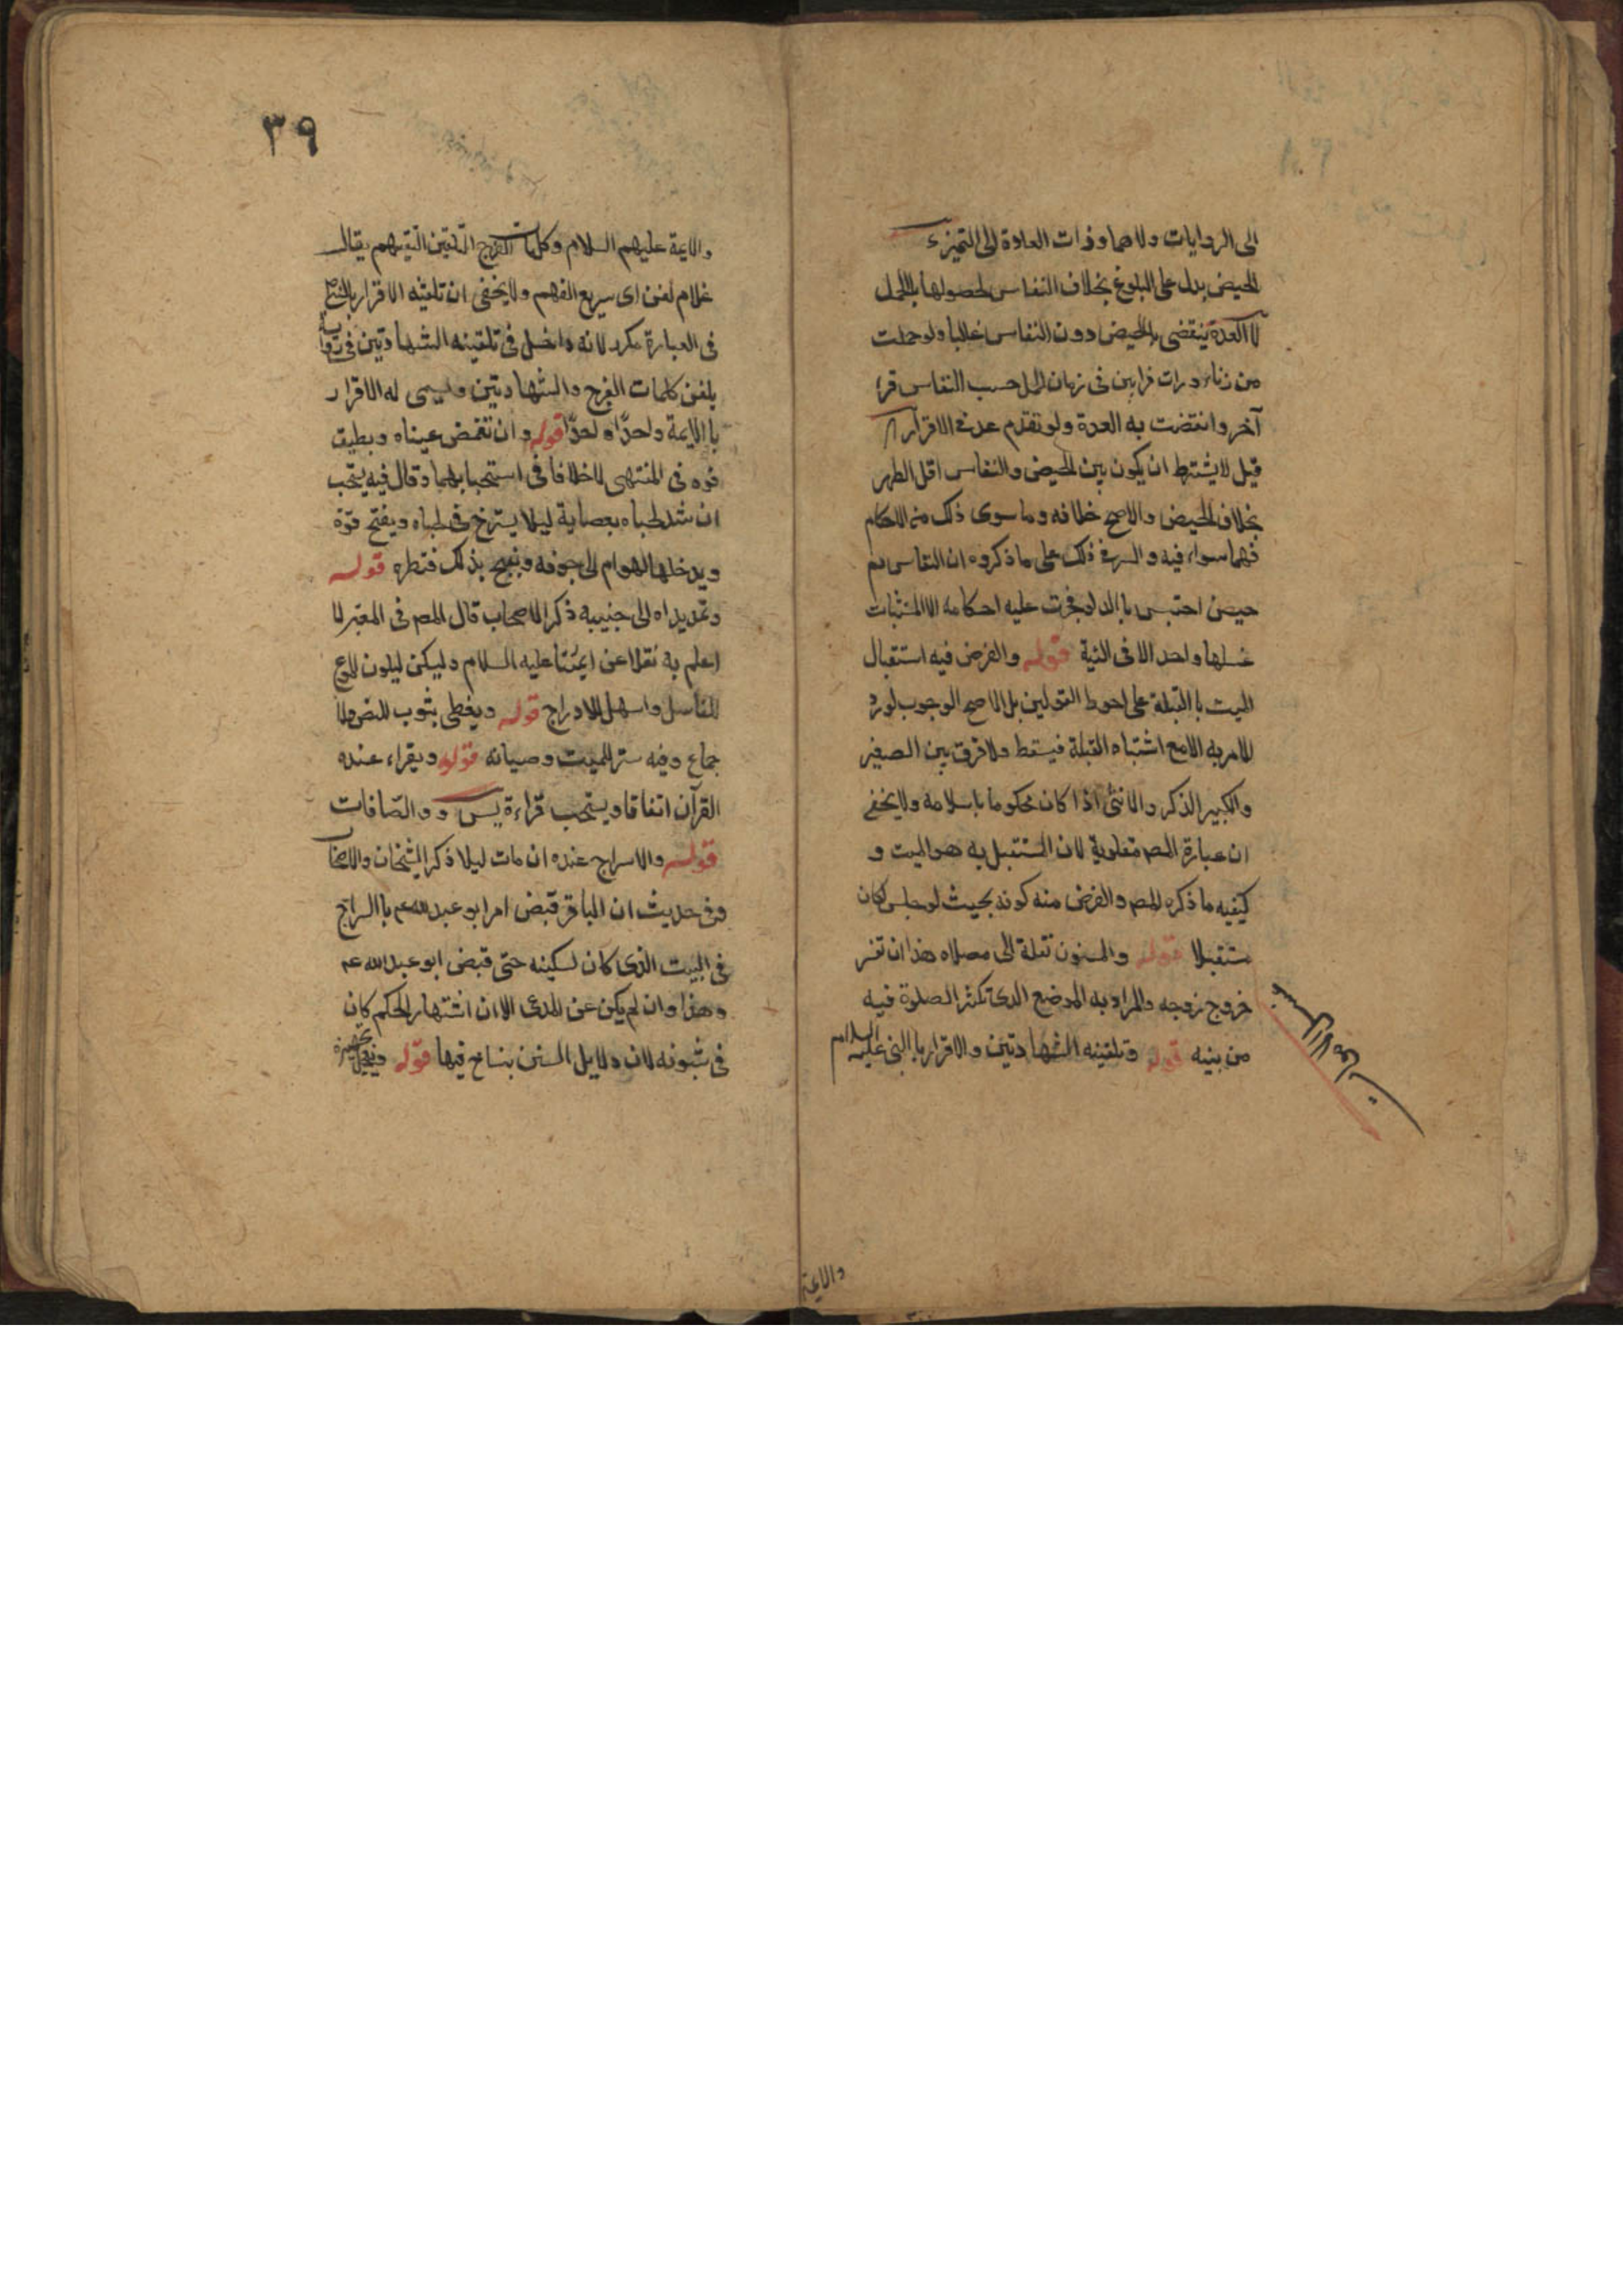 الى الروايات ولاهما وذات العادة الى التميز ء
الحيض يدل على البلوغ بخلاف النفاس لحصولها بالحمل
لا العدة ينقضى بالحيض دون النفاس غالبا ولو حملت
من زناء ورات قرابين فى زمان الحمل حسب النفاس قرءا
آخر وانقضت به العدة ولو تقدم عدفى الاقرآر
قيل لا يشترط ان يكون بين الحيض والنفاس اقل الطهر
بخلاف الحيض والاصح خلافه وما سوى ذلك من الاحكام
فهما سواء فيه والسر فى ذلك على ما ذكروه ان النفاس دم
حيض احتبس باالولد فجرت عليه احكامه الا المثبتات
غسلها واحد الا فى النية قوله والفرض فيه استقبال
الميت باالقبلة على احوط القولين بل الاصح الوجوب لورد
للامر به الا مع اشتباه القبلة فيسقط ولا فرق بين الصغير
والكبير الذكر والانثى اذا كان محكوما باسلامه ولا يخفى
ان عبارة المصم مقلوبة لان المستقبل به هو الميت و
كيفيه ما ذكره المصم والفرض منه كونه بحيث لو جلس لكان
مستقبلا قوله والمسنون نقله الى مصلاه هذا ان تعسر
خروج زوجه والمراد به الموضع الذى تكثر الصلوة فيه
من بنيه قوله وتلقينه الشهادتين والاقرار باالنبى عليه السلام
والايمة
٣٩
والايمة عليهم السلام وكلمات الفرج التلقين التفهيم يقال
غلام لقن اى سريع الفهم ولا يخفى ان تلقينه الاقرار بالنبى
فى العبارة مكرر لانه داخل فى تلقينه الشهادتين فى رواية
يلقن كلمات الفرج والشهادتين ويسمى له الاقرار
باالايمة واحدًا واحدًا قوله وان تغمض عيناه ويطبق
فوه فى المنتهى لا خلافا فى استحبابهما وقال فيه يستحب
ان شد لحياه بعصابة ليلا يسترخ لحياه ويفتح فوه
ويدخلها الهوام الى جوفه ويقبح بذلك منظره قوله
وتمد يداه الى جنبيه ذكر الاصحاب قال المصم فى المعتبر لا
اعلم به نقلا عن ايمتنا عليه السلام وليكن ليكون اطوع
للغاسل واسهل للادراج قوله ويغطى بثوب للنص والا
جماع وفيه ستر للميت وصيانه قوله ويقراء عنده
القرآن اتفاقا ويستحب قراءة يس و والصّافات
قوله والاسراج عنده ان مات ليلا ذكر الشيخان والاصحاب
وفى حديث ان الباقر قبض امر ابو عبدالله عم باالسراج
فى البيت الذى كان يسكينه حتى قبض ابو عبدالله عم
وهذا وان لم يكن عين المدعى الا ان اشتهار الحكم كان
فى ثبوته لان دلايل السنن يتسامح فيها قوله ويعجل تجهيزه